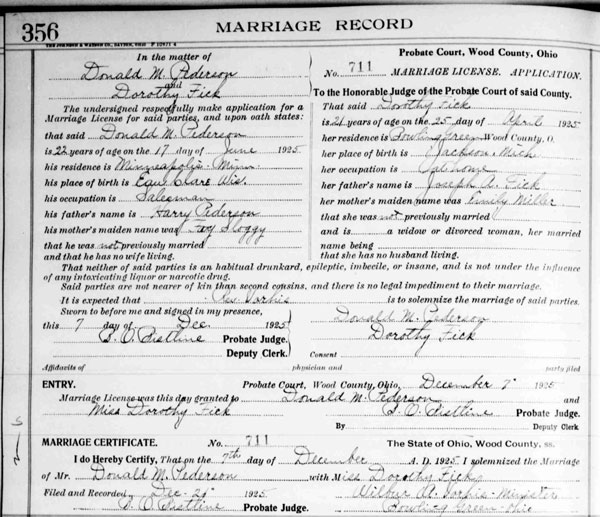 356
MARRIAGE RECORD
THE JOHNSON & WATSON CO., DAYTON, OHIO
In the matter of
Donald M. Pederson
and
Dorothy Fick
The undersigned respectfully make application for a
Marriage License for said parties, and upon oath states:
that said Donald M. Pederson
is 22 years of age on the 17 day of June 1925
his residence is Minneapolis - Minn.
his place of birth is Eau Clare Wis.
his occupation is Salesman
his father's name is Harry Pederson
his mother's maiden name was Fay Sloggy
that he was not previously married
and that he has no wife living.
Probate Court, Wood County, Ohio
No. 711 MARRIAGE LICENSE. APPLICATION.
To the Honorable Judge of the Probate Court of said County.
That said Dorothy Fick
is 21 years of age on the 25 day of April 1925
her residence is Bowling Green Wood County, O.
her place of birth is Jackson, Mich
her occupation is At home
her father's name is Joseph A. Fick
her mother's maiden name was Emily Miller
that she was not previously married
and is a widow or divorced woman, her married
name being
that she has no husband living.
That neither of said parties is an habitual drunkard, epileptic, imbecile, or insane, and is not under the influence
of any intoxicating liquor or narcotic drug.
Said parties are not nearer of kin than second cousins, and there is no legal impediment to their marriage.
It is expected that Rev. Vorhis is to solemnize the marriage of said parties.
Sworn to before me and signed in my presence,
this 7 day of Dec. 1925
Probate Judge.
Deputy Clerk.
Donald M. Pederson
Dorothy Fick
Consent
Affidavits of physician and party filed
ENTRY. Probate Court, Wood County, Ohio, December 7" 1925
Marriage License was this day granted to Donald M. Pederson and
Miss Dorothy Fick Probate Judge.
By Deputy Clerk
MARRIAGE CERTIFICATE. No. 711 The State of Ohio, Wood County, ss.
I do Hereby Certify, That on the 7th day of December A. D. 1925 I solemnized the Marriage
of Mr. Donald M. Pederson with Miss Dorothy Fick
Filed and Recorded Dec. 1925 Wilbur Vorhis - Minister
Probate Judge. Bowling Green - Ohio